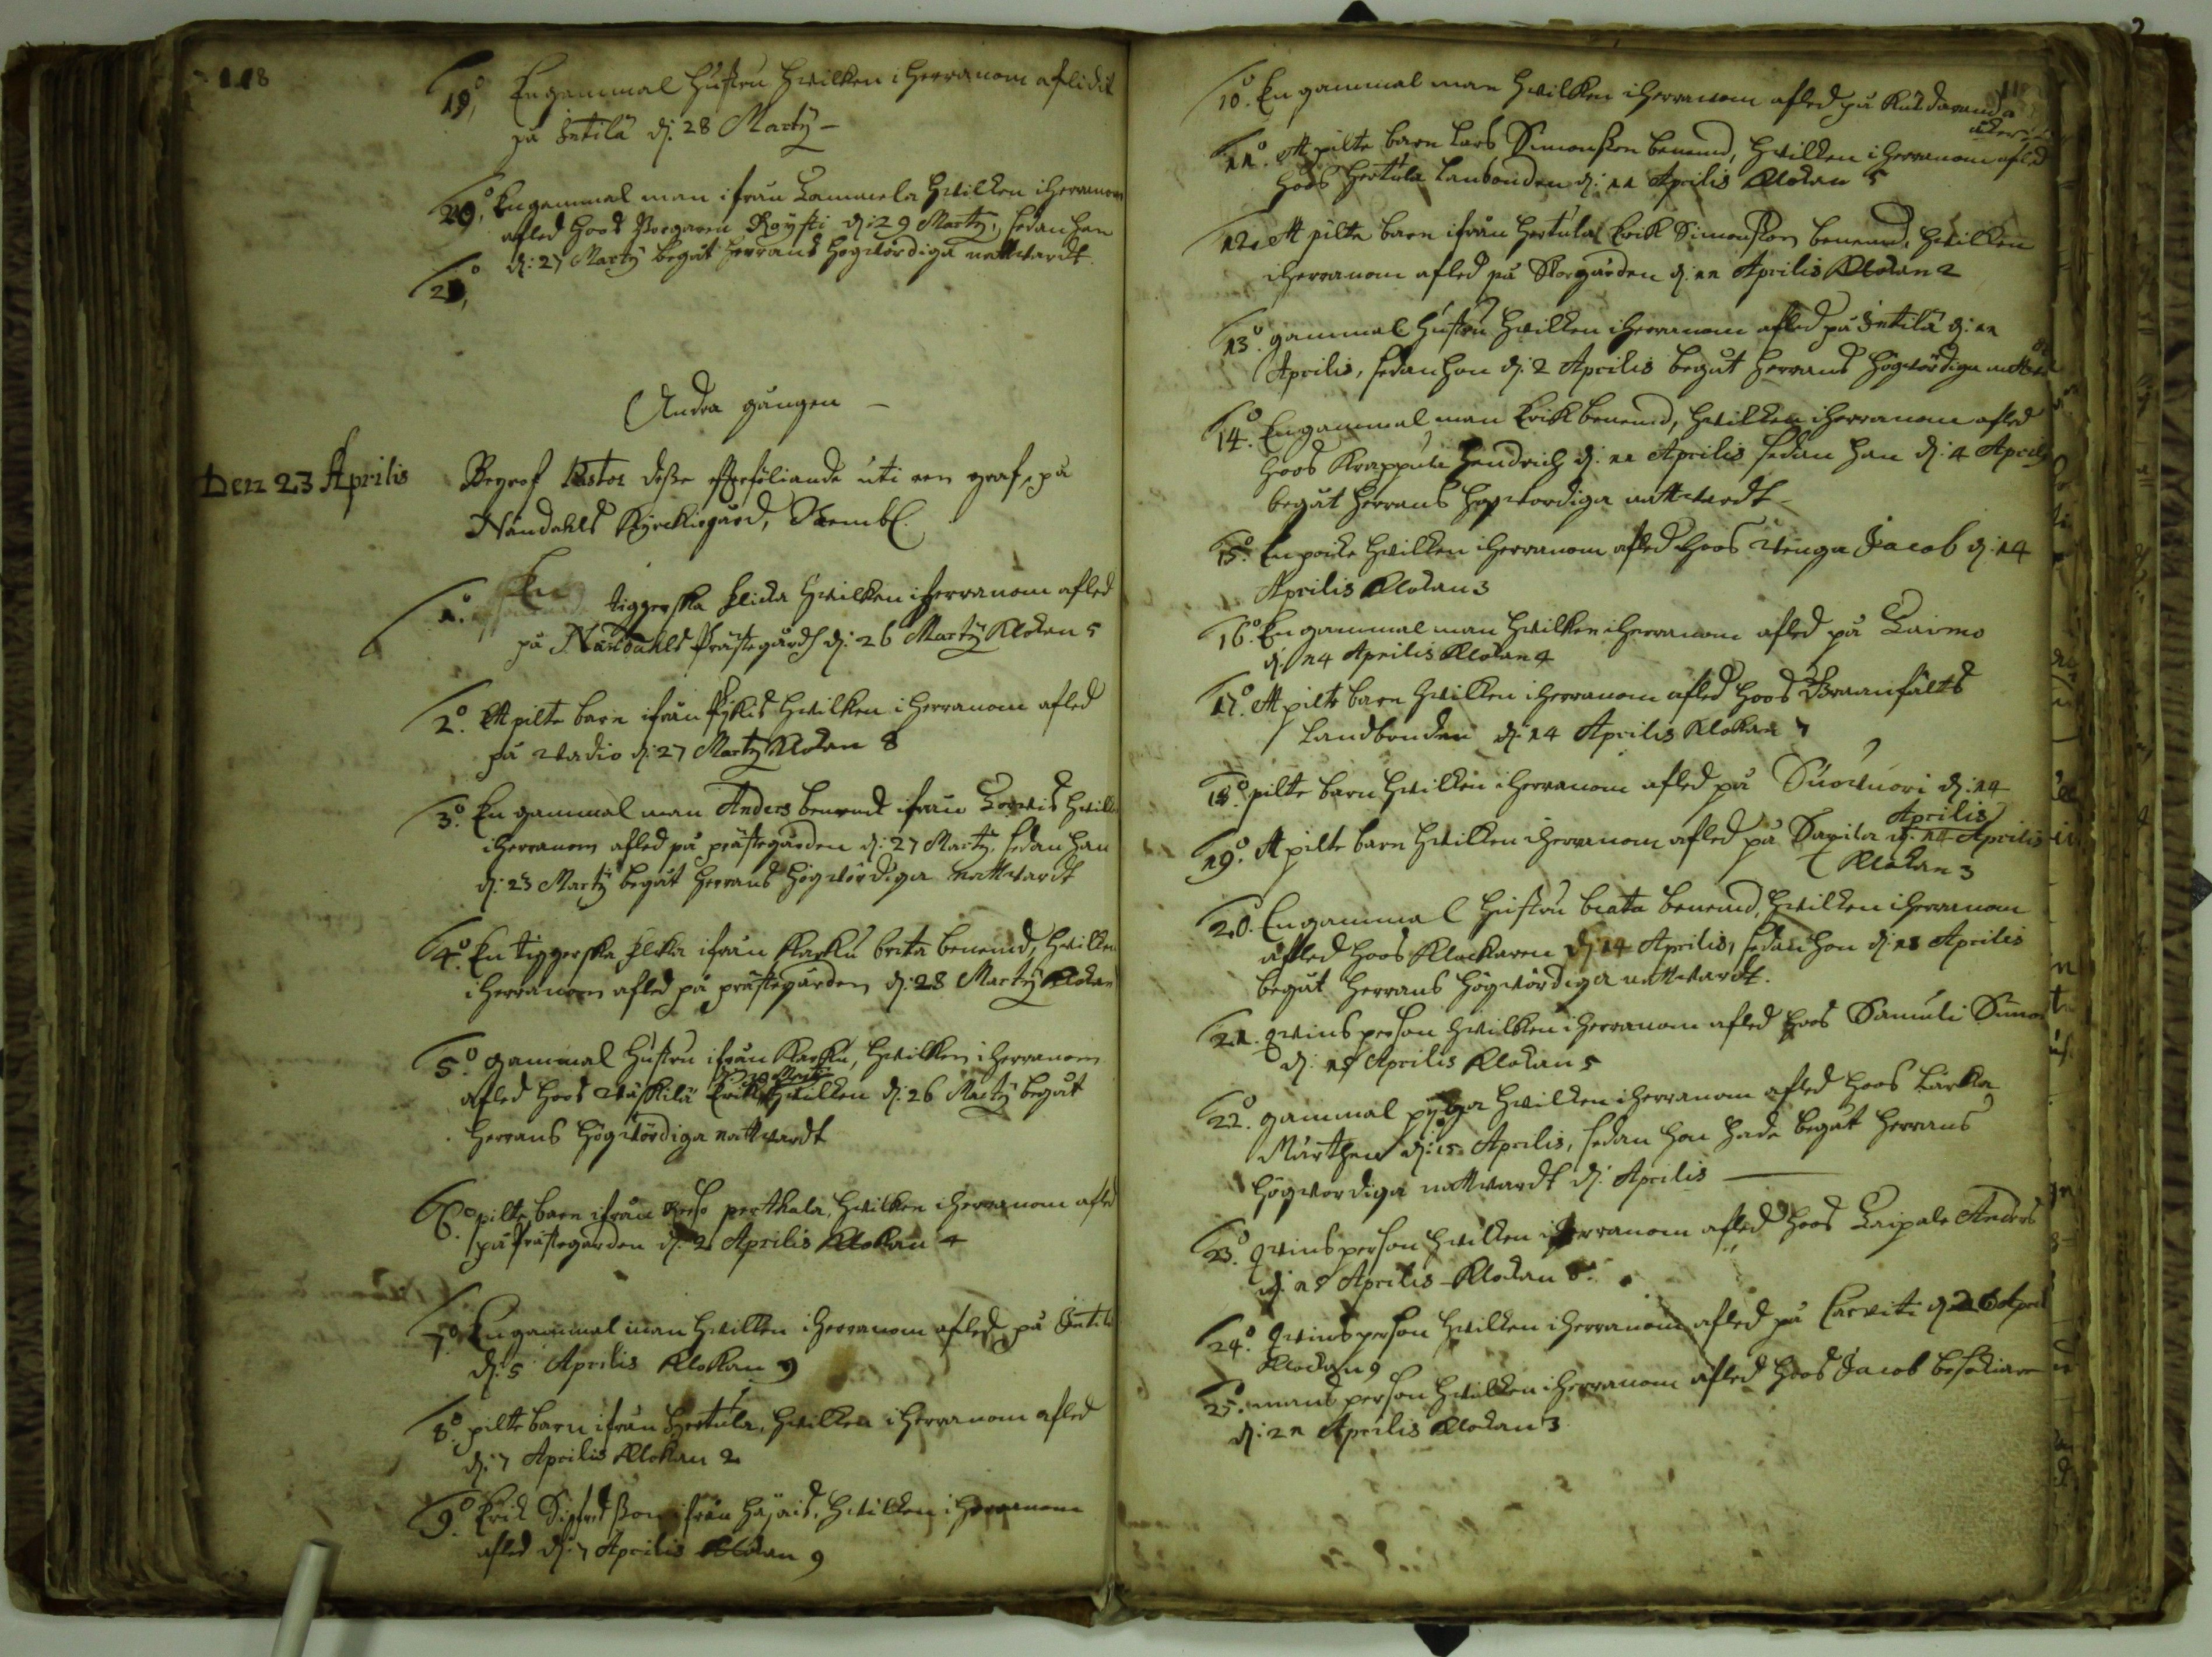 118
19,° En gammal hustru hwilken i herranom aflidit
på Intilä d: 28 Martÿ —
20,° En gammal man ifrån Lammela hwilken i herranom
afled hoos Röÿsti d: 29 Martÿ, sedan han
d: 27 Martÿ begåt herrans högwördiga nattwardt.
21,°
Andra gången —
Den 23 Aprilis
Begrof Pastor desse efterföliande uti een graf, på
Nåndahls Kÿrckiogård,
1.° En tiggerska flicka hwilken i herranom afled
på Nåndahls Prästegårdh d: 26 Martÿ Klokan 5
2.° Ett pilte barn ifrån hwilken i herranom afled
på Wadio d: 27 Martÿ Klokan 8
3.° En gammal man Anders benemd ifrån hwilken
i herranom afled på prästegården d: 27 Martÿ. sedan han
d: 23 Martÿ begåt herrans högwördiga nattwardt
4.° En tiggerska flicka ifrån Karku brita benemd, hwilken
i herranom afled på prästegården d: 28 Martÿ Klokan
5.° gammal hustru ifrån Karku, hwilken i herranom
d: 30 Martÿ
afled hoos Wäskilä Erik, hwilken d: 26 Martÿ begåt
herrans högwördiga nattwardt
6.° pilte barn ifrån perthala, hwilken i herranom afled
på Prästegården d: 2 Aprilis Klokan 4
7.° En gammal man hwilken i herranom afled på Intilä
d: 5 Aprilis Klokan 9
8.° pilte barn ifrån Hertula, hwilken i herranom afled
d: 7 Aprilis Klokan 2
9.° Erik Sigfredsson ifrån hwilken i herranom
afled d: 7 Aprilis Klokan 9
10.° En gammal man hwilken i herranom afled på
åker
11.° Ett pilte barn Lars Simonsson benemd, hwilken i herranom afled
hoos Hertula Lanbonden d: 11 Aprilis Klokan 5
12. Ett pilte barn ifrån Hertula Erik Simonsson benemd, hwilken
i herranom afled på Storgården d: 11 Aprilis Klokan 2
13.° gammal hustru hwilken i herranom afled på Intilä d: 11
Aprilis, sedan hon d: 2 Aprilis begåt herrans högwördiga nattward
14.° En gammal man Erik benemd, hwilken i herranom afled
hoos Krappula Hendrich d: 11 Aprilis sedan han d: 4 Aprilis
begåt herrans högwördiga nattwardt
15.° En poicke hwilken i herranom afled hoos Jacob d: 14
Aprilis Klokan 3
16.° En gammal man hwilken i herranom afled på Kaimo
d: 14 Aprilis Klokan 4
17.° Ett pilte barn hwilken i herranom afled hoos
Landbonden d: 14 Aprilis Klokan 7
18.° pilte barn hwilken i herranom afled på Suowuori d: 14
Aprilis
19.° Ett pilte barn hwilken i herranom afled på Savila d: 14 Aprilis
Klokan 3
20. En gammal hustru beata benemd, hwilken i herranom
afled hoos Klockaren d: 14 Aprilis, sedan hon d: 13 Aprilis
begåt herrans högwördiga nattwardt.
21. qwins person hwilken i herranom afled hoos Samuli Simon
d: 15 Aprilis Klokan 5
22.° gammal pÿga hwilken i herranom afled hoos
Mårthen d: 15 Aprilis, sedan hon hade begåt herrans
högwördiga nattwardt d: Aprilis —
23.° qwins person hwilken i herranom afled hoos Kaipale Anders
d: 18 Aprilis Klokan 8.
24.° qwins person hwilken i herranom afled på Carviti d: 20 April
Klockan 9
25.° mans person hwilken i herranom afled hoos Jacob
d: 21 Aprilis Klokan 3